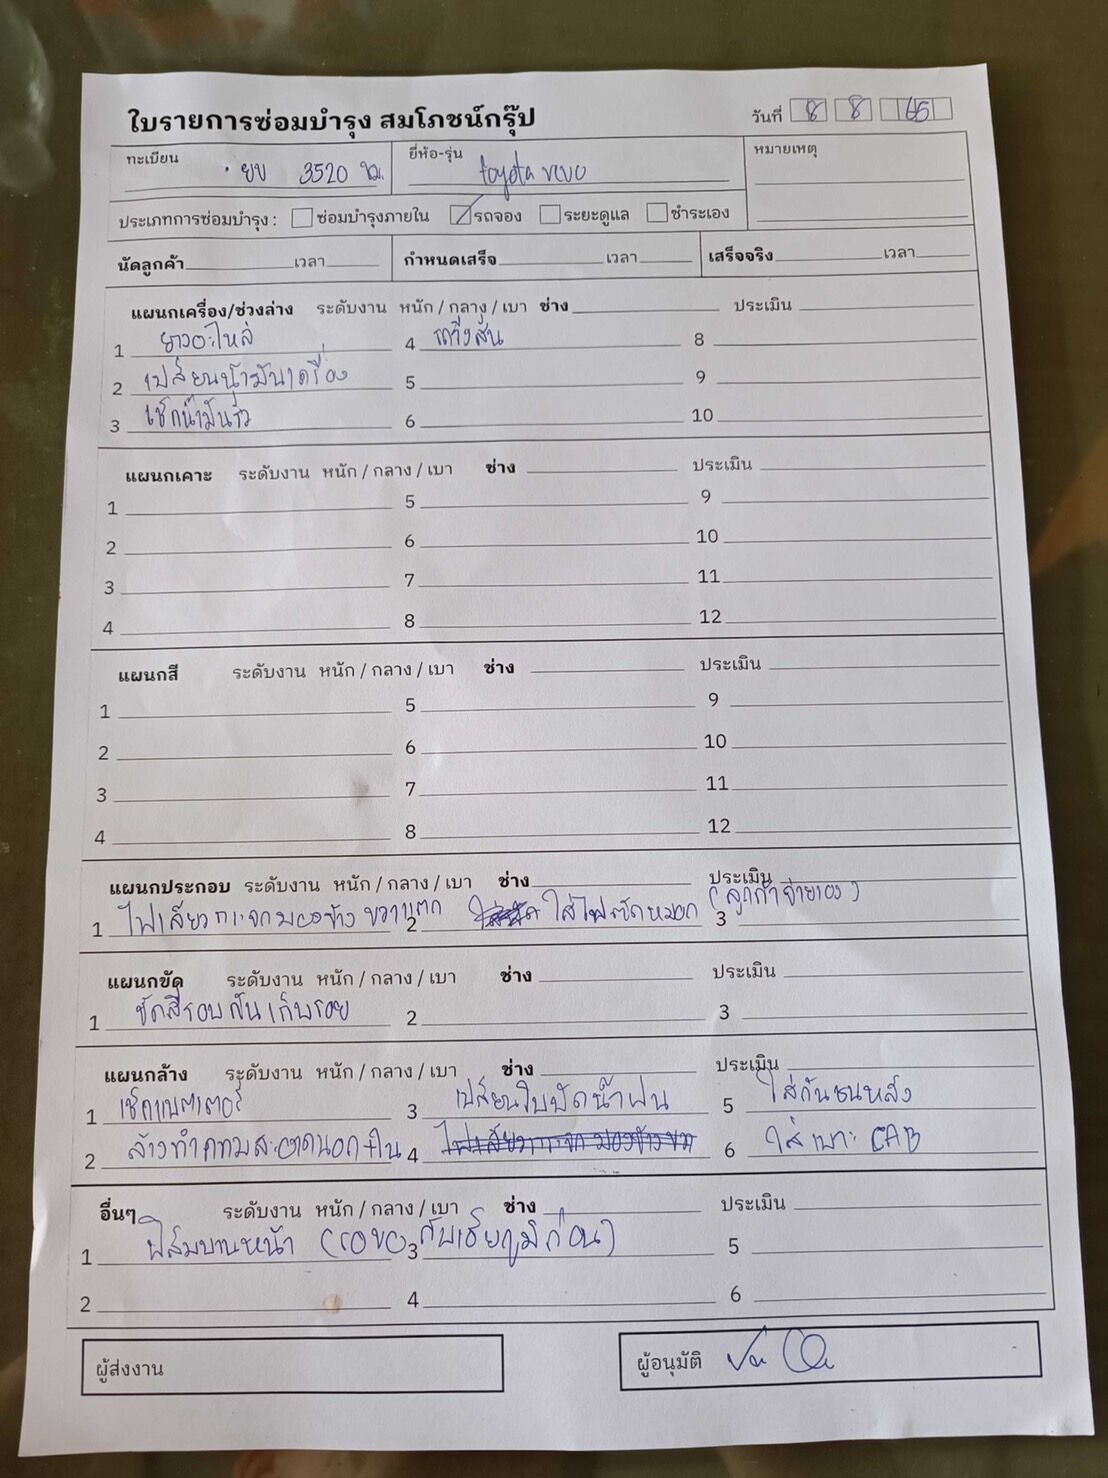 ใบรายการซ่อมบำรุง สมโภชน์กรุ๊ป
วันที่ 8 8 65
ทะเบียน ยบ 3520 ขก.
ยี่ห้อ-รุ่น toyota revo
หมายเหตุ
ประเภทการซ่อมบำรุง : ซ่อมบำรุงภายใน รถจอง ระยะดูแล ชำระเอง
นัดลูกค้า เวลา กำหนดเสร็จ เวลา เสร็จจริง เวลา
แผนกเครื่อง/ช่วงล่าง ระดับงาน หนัก / กลาง / เบา ช่าง ประเมิน
1 ยางอะไหล่ 4 รถวิ่งสั่น 8
2 เปลี่ยนน้ำมันเครื่อง 5 9
3 เช็กน้ำมันรั่ว 6 10
แผนกเคาะ ระดับงาน หนัก / กลาง / เบา ช่าง ประเมิน
1 5 9
2 6 10
3 7 11
4 8 12
แผนกสี ระดับงาน หนัก / กลาง / เบา ช่าง ประเมิน
1 5 9
2 6 10
3 7 11
4 8 12
แผนกประกอบ ระดับงาน หนัก / กลาง / เบา ช่าง ประเมิน
1 ไฟเลี้ยวกระจกมองข้างขวาแตก 2 ใส่ไฟตัดหมอก (ลูกค้าจ่ายเอง) 3
แผนกขัด ระดับงาน หนัก / กลาง / เบา ช่าง ประเมิน
1 ขัดสีรอบคันเก็บรอย 2 3
แผนกล้าง ระดับงาน หนัก / กลาง / เบา ช่าง ประเมิน
1 เช็กแบตเตอรี่ 3 เปลี่ยนใบปัดน้ำฝน 5 ใส่กันชนหลัง
2 ล้างทำความสะอาดนอก+ใน 4 ไฟเลี้ยวกระจกมองข้างขวา 6 ใส่เบาะ CAB
อื่นๆ ระดับงาน หนัก / กลาง / เบา ช่าง ประเมิน
1 ฟิล์มบานหน้า (รอขอกับเฮียภูมิก่อน) 3 5
2 4 6
ผู้ส่งงาน
ผู้อนุมัติ